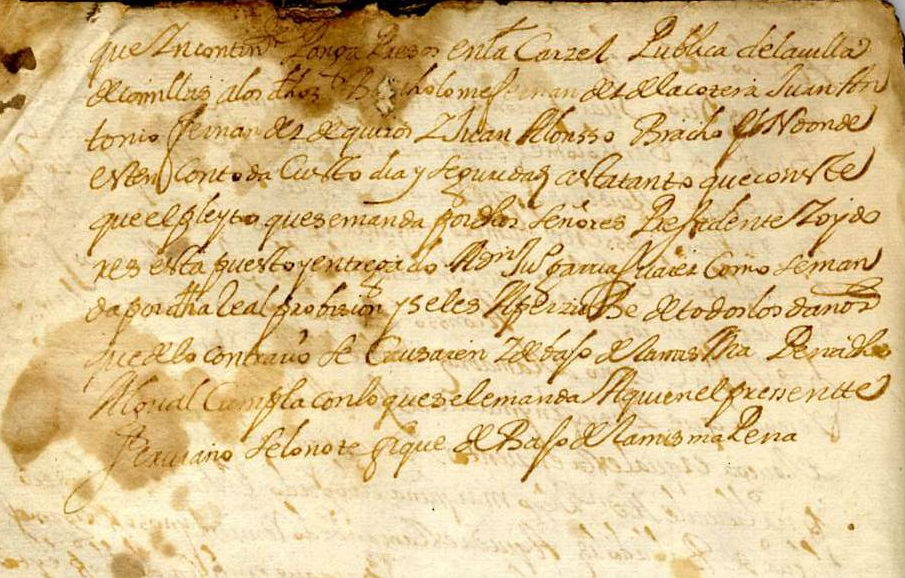 que Incontinte Ponga Presos enla Carzel Publica delavilla
de comillas alos dhos Bartholome fernandez dela cotera Juan An
tonio fernandez de quiros Y Juan Alonsso Bracho En donde
esten contoda Custo dia y seguridad asta tanto que conste
que el pleyto quesemanda por dhos señores Presidente Y oydo
res esta puesto y entregado garcia suarez Como seman
da por dha Real probision y seles Aperziue de todos los danos
que delo contrario se Causaren Y debajo dela mis ma Pena dho
Cumpla conlo quesele manda Aquien el pressentte
Scriuano selo note fique de Bajo dela mis ma Pena